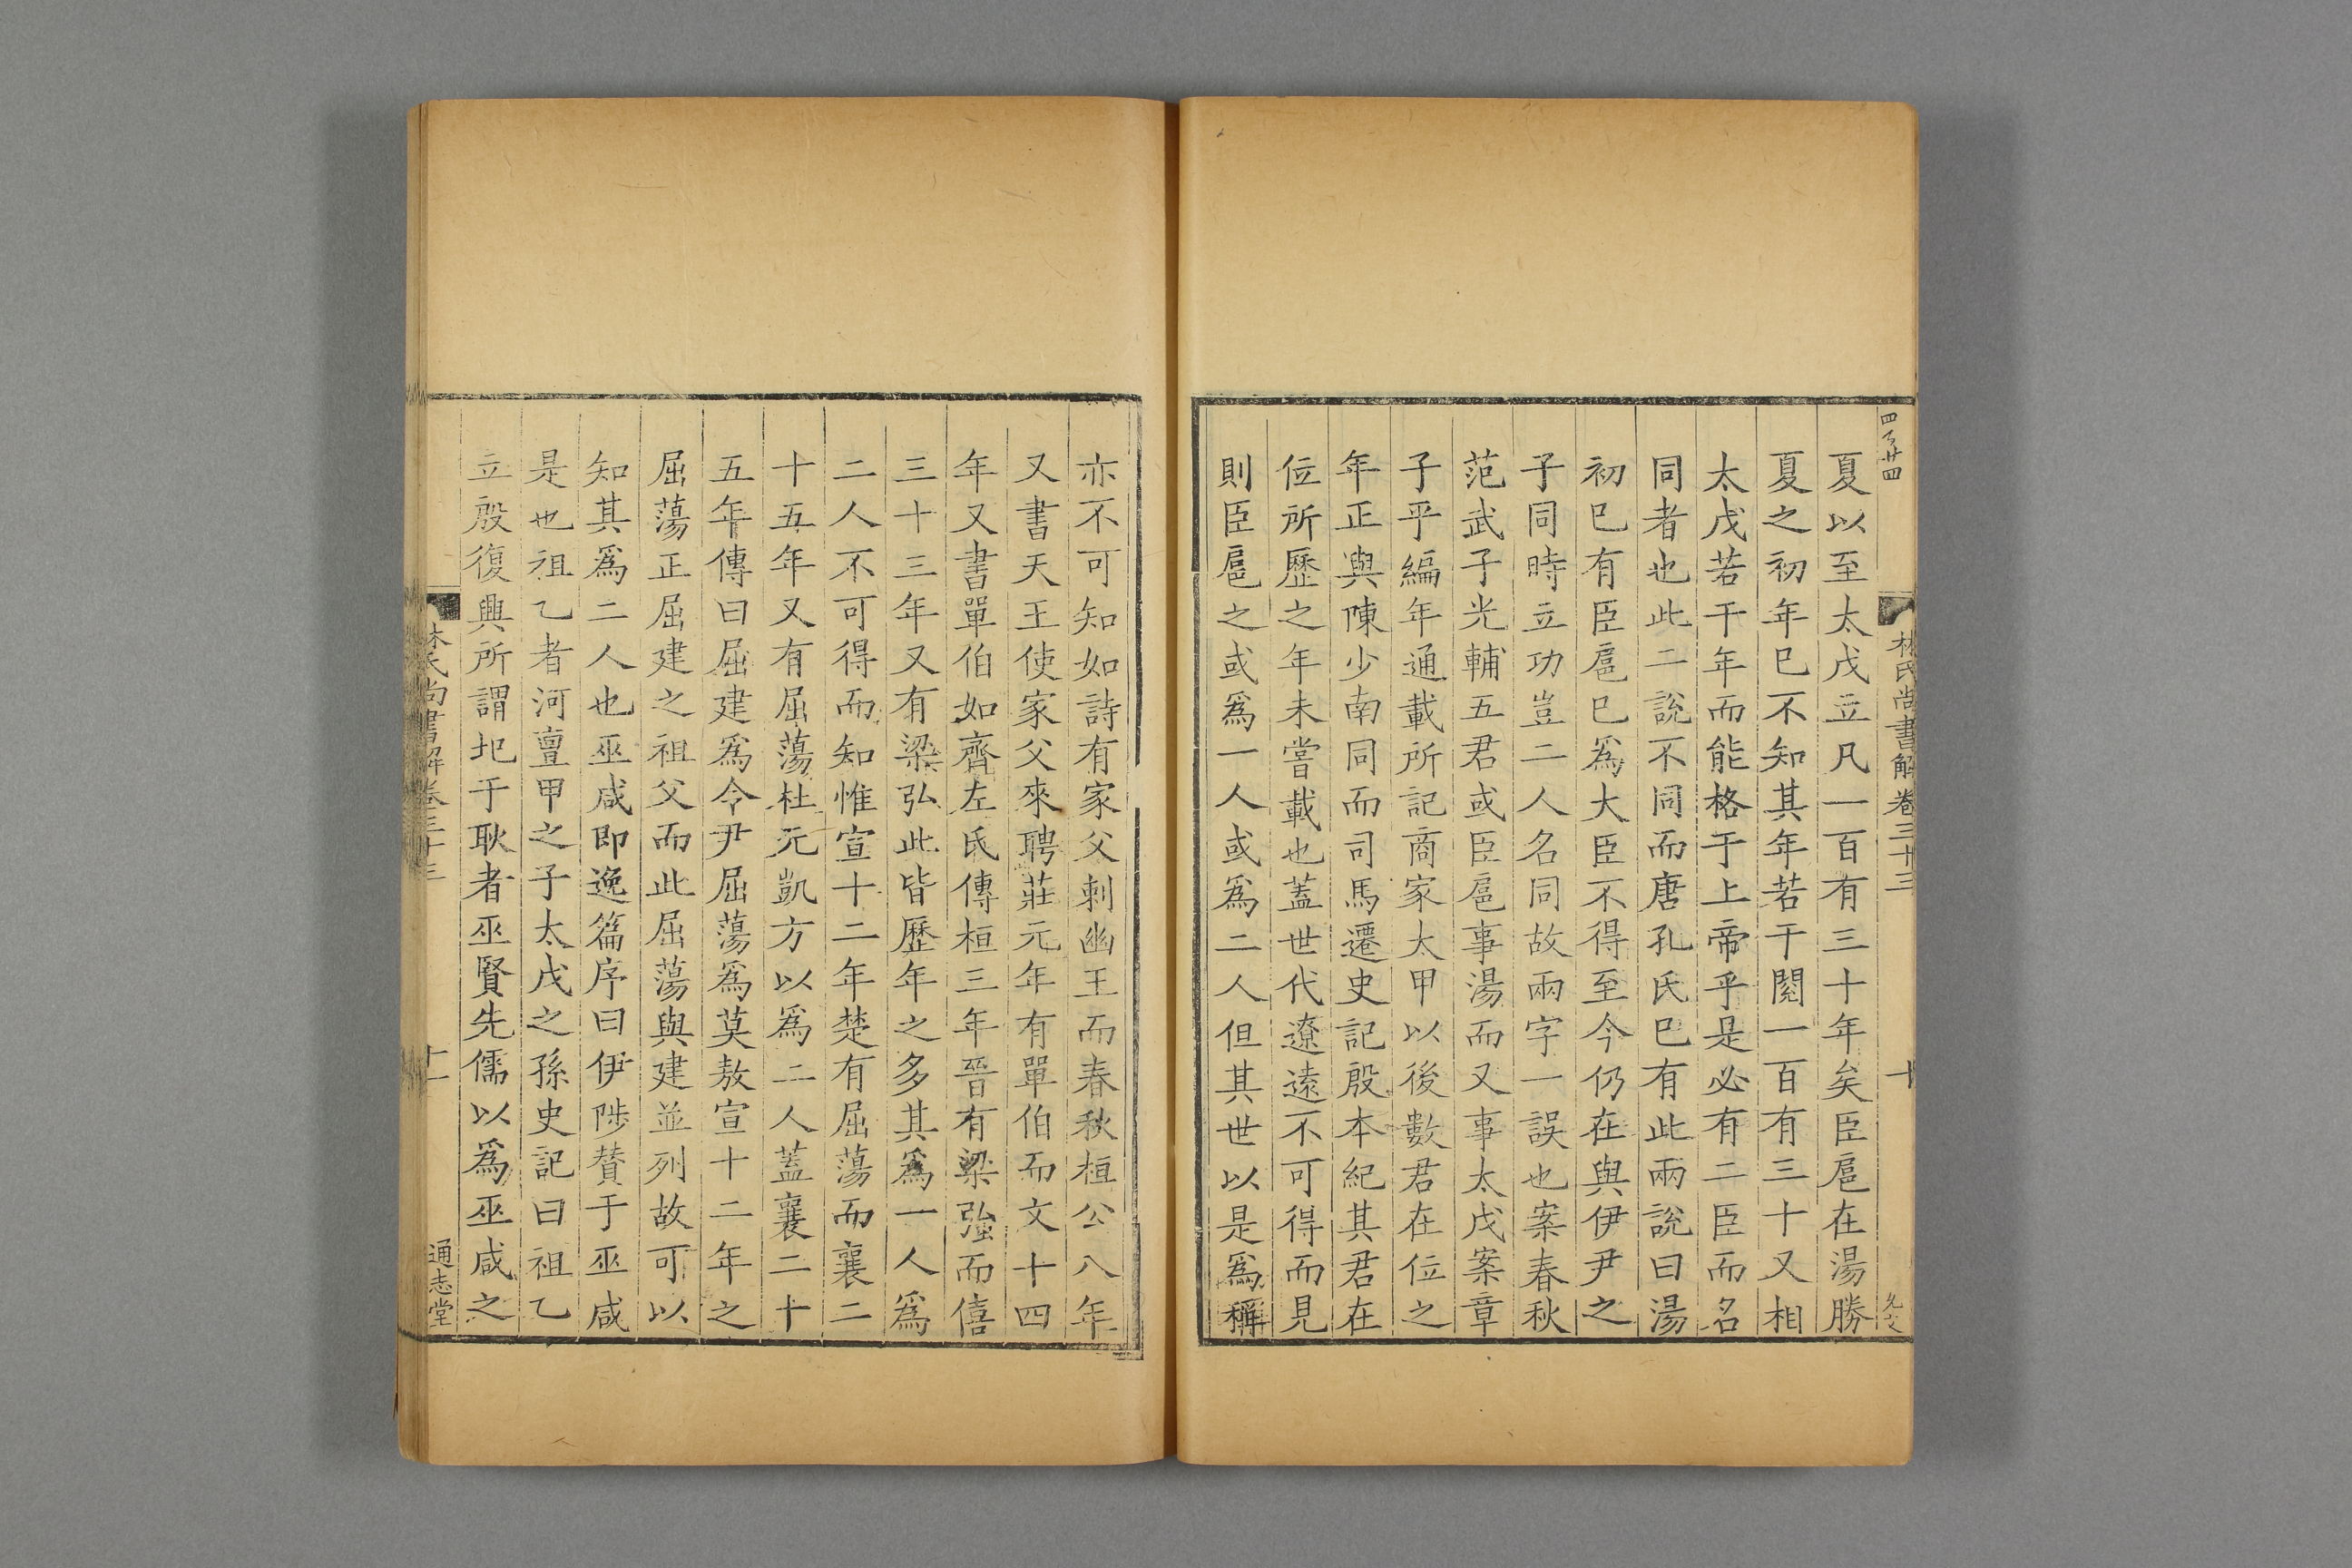 林氏尚書解卷三十三 十
夏以至太戊立凡一百有三十年矣臣扈在湯勝
夏之初年巳不知其年若干閱一百有三十又相
太戊若干年而能格于上帝乎是必有二臣而名
同者也此二說不同而唐孔氏巳有此兩說曰湯
初巳有臣扈巳爲大臣不得至今仍在與伊尹之
子同時立功豈二人名同故兩字一誤也案春秋
范武子光輔五君或臣扈事湯而又事太戊案章
子平編年通載所記商家太甲以後數君在位之
年正與陳少南同而司馬遷史記殷本紀其君在
位所歷之年未嘗載也蓋世代遼遠不可得而見
則臣扈之或爲一人或爲二人但其世以是爲稱
亦不可知如詩有家父刺幽王而春秋桓公八年
又書天王使家父來聘莊元年有單伯而文十四
年又書單伯如齊左氏傳桓三年晉有梁強而僖
三十三年又有梁弘此皆歷年之多其爲一人爲
二人不可得而知惟宣十二年楚有屈蕩而襄二
十五年又有屈蕩杜元凱方以爲二人蓋襄二十
五年傳曰屈建爲令尹屈蕩爲莫敖宣十二年之
屈蕩正屈建之祖父而此屈蕩與建並列故可以
知其爲二人也巫咸即逸篇序曰伊陟賛于巫咸
是也祖乙者河亶甲之子太戊之孫史記曰祖乙
立殷復興所謂圯于耿者巫賢先儒以爲巫咸之
林氏尚書解卷三十三 十一 通志堂